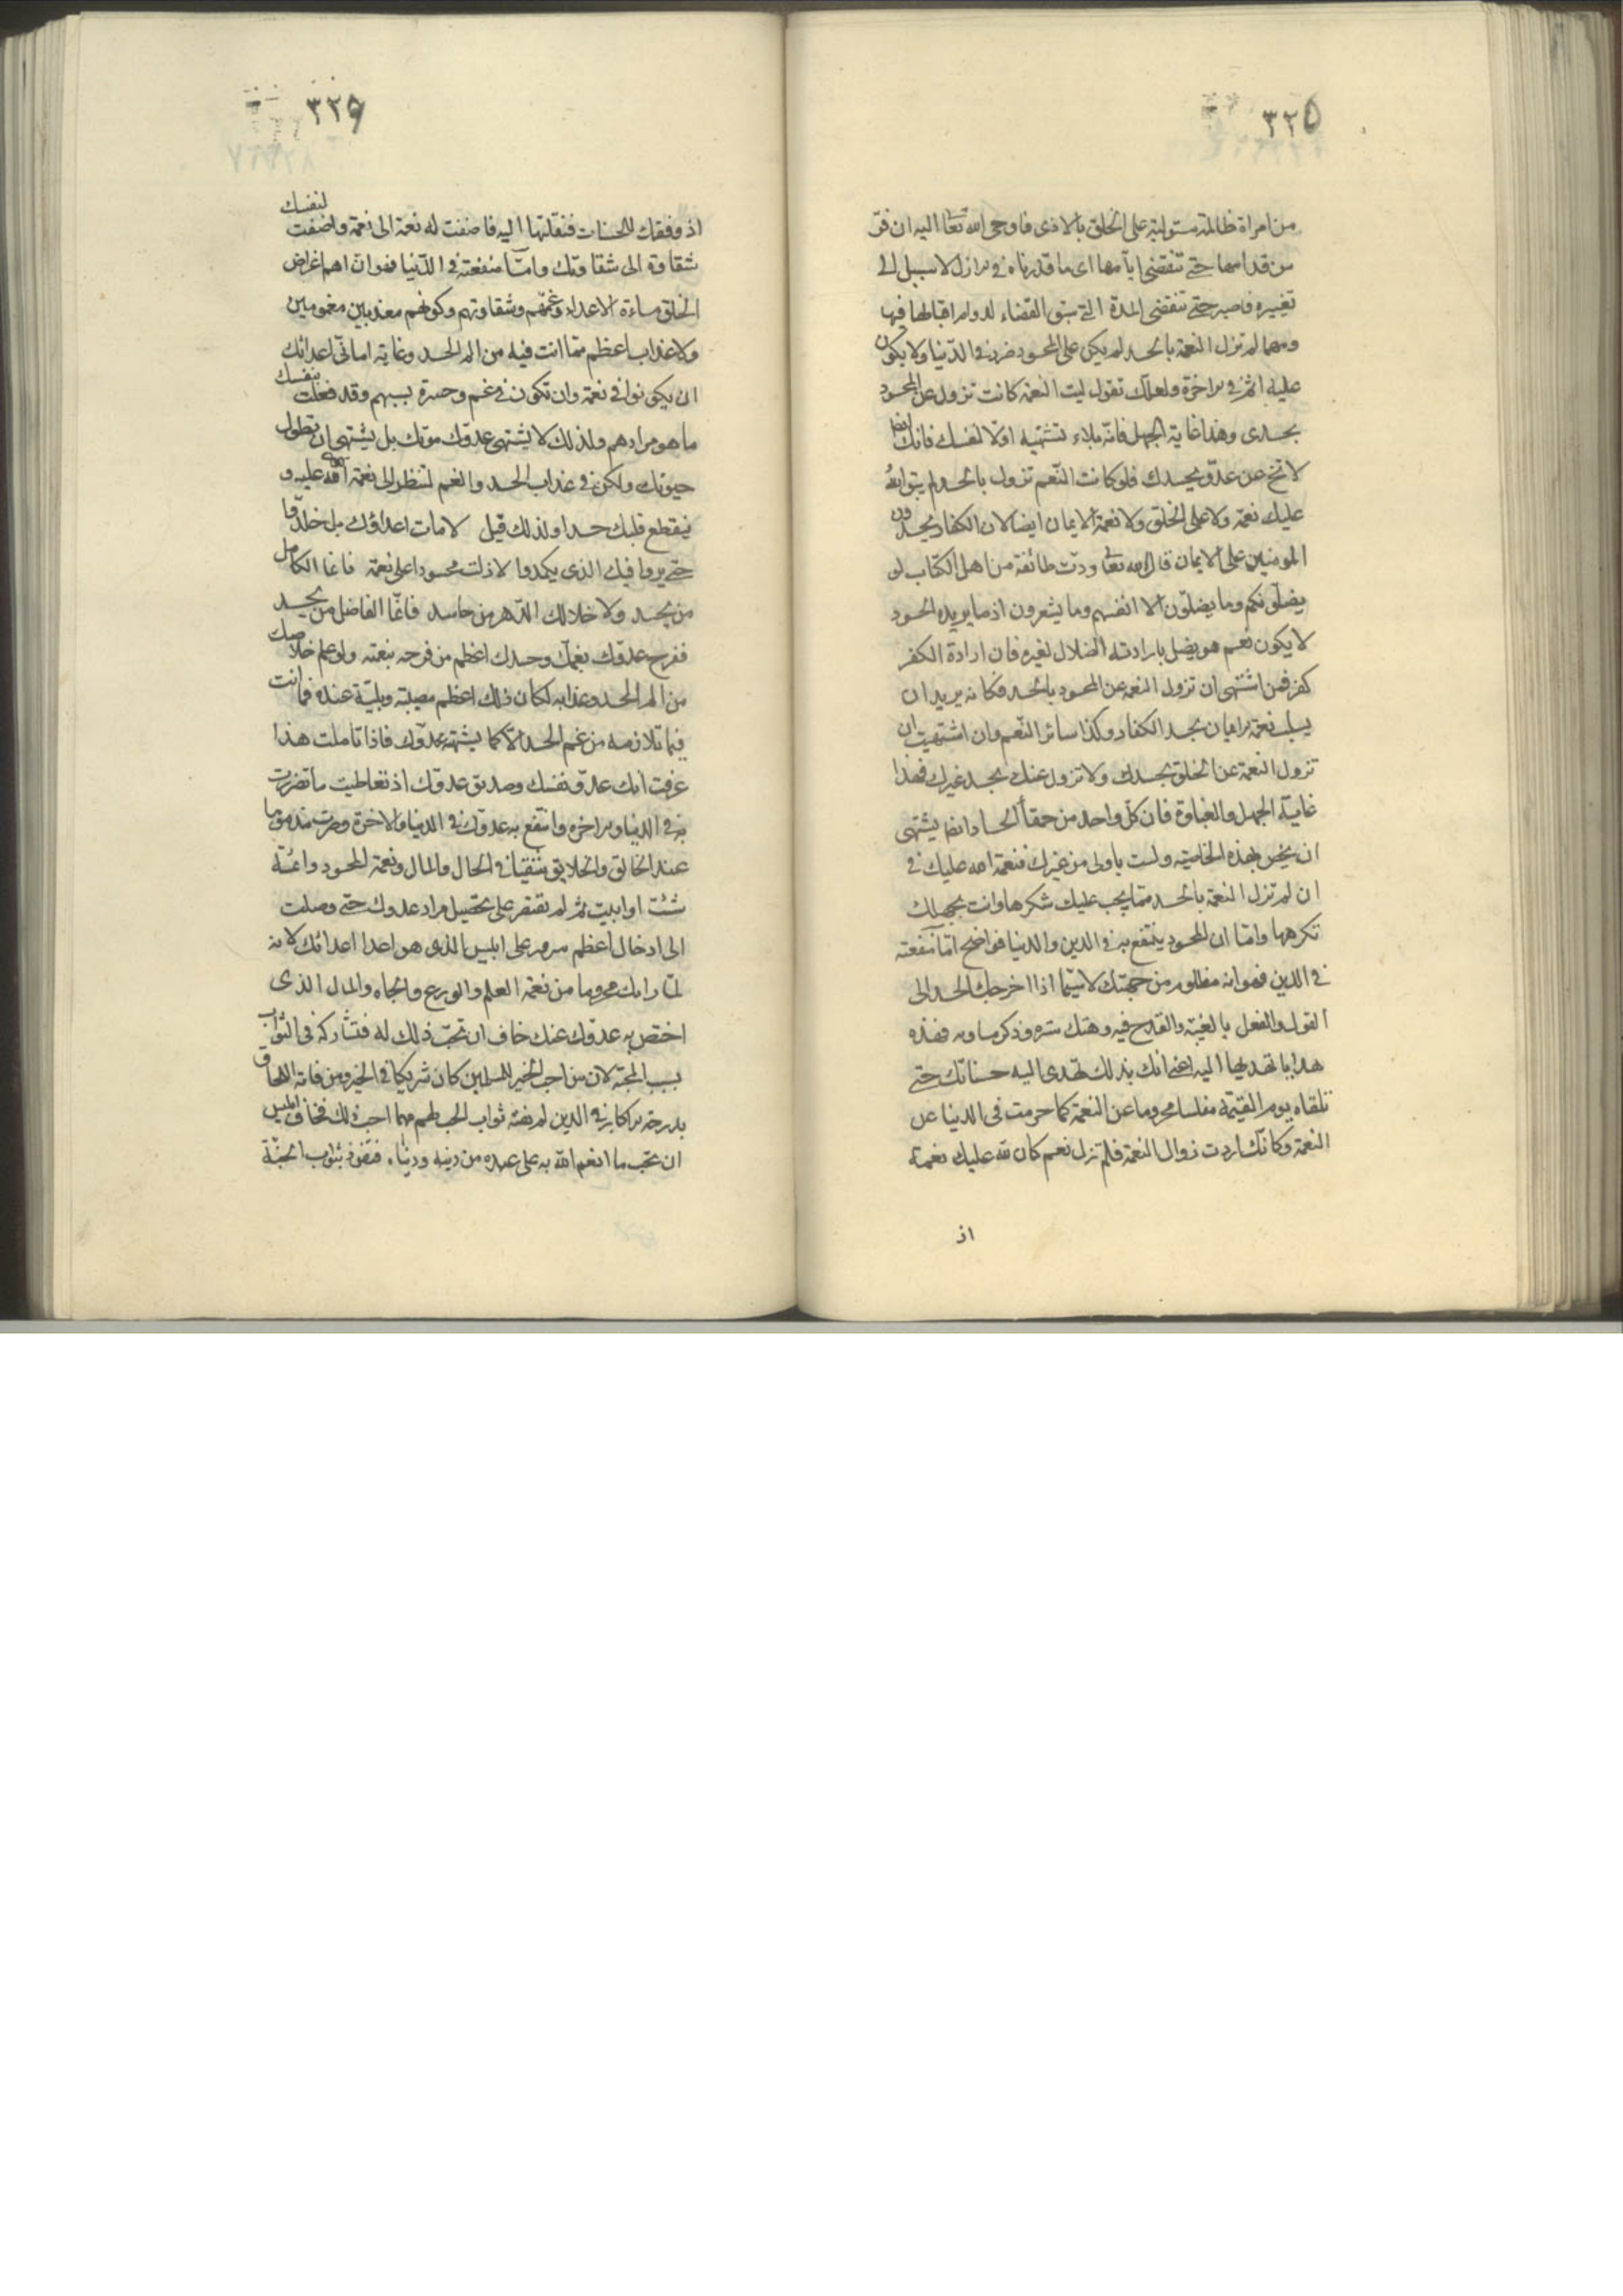 ٣٢٥
من امراة ظالمة مستولية على الخلق بالاذى فاوحى الله تعا اليه ان فر
من قدامها حتى تنقضى ايامها اى ما قدرناه فى الازل لا سبيل الى
تغييره فاصبر حتى تنقضى المدة التى سبق القضاء لدوام اقبالها فيها
ومهما لم تزل النعمة بالحسد لم يكن على المحسود ضرر فى الدنيا ولا يكون
عليه اثم فى الاخرة ولعلك تقول ليت النعمة كانت تزول عن المحسود
بحسدى وهذا غاية الجهل فانه بلاء تشتهيه اولا لنفسك فانك ايضا
لا تخ عن عدو يحسدك فلو كانت النعم تزول بالحسد لم يبق لله
عليك نعمة ولا على الخلق ولا نعمة الايمان ايضا لان الكفار يحسدون
المومنين على الايمان قال الله تعا ودت طائفة من اهل الكتاب لو
يضلونكم وما يضلون الا انفسهم وما يشعرون اذ ما يريده الحسود
لا يكون نعم هو يضل بارادته الضلال لغيره فان ارادة الكفر
كفر فمن اشتهى ان تزول النعمة عن المحسود بالحسد فكانه يريد ان
يسلب نعمة الايمان بحسد الكفار وكذا سائر النعم وان اشتهيت ان
تزول النعمة عن الخلق بحسدك ولا تزول عنك بحسد غيرك فهذا
غاية الجهل والغباوة فان كل واحد من حمقا الحساد ايضا يشتهى
ان يخص بهذه الخاصية ولست باولى من غيرك فنعمة الله عليك فى
ان لم تزل النعمة بالحسد مما يجب عليك شكرها وانت بجهلك
تكرهها واما ان المحسود ينتفع به فى الدين والدنيا فواضح اما منفعته
فى الدين فهو انه مظلوم من جهتك لا سيما اذا اخرجك الحسد الى
القول والفعل بالغيبة والقدح فيه وهتك ستره وذكر مساويه فهذه
هدايا تهديها اليه اعنى انك بذلك تهدى اليه حسناتك حتى
تلقاه يوم القيمة مفلسا محروما عن النعمة كما حرمت فى الدنيا عن
النعمة وكانك اردت زوال النعمة فلم تزل نعم كان لله عليك نعمة
اذ
٣٢٦
اذ وفقك للحسنات فنقلتها اليه فاضفت له نعمة الى نعمة واضفت لنفسك
شقاوة الى شقاوتك واما منفعته فى الدنيا فهو ان اهم اغراض
الخلق مساءة الاعداء وغمهم وشقاوتهم وكونهم معذبين مغمومين
ولا عذاب اعظم مما انت فيه من الم الحسد وغاية امانى اعدائك
ان يكونوا فى نعمة وان تكون فى غم وحسرة بسببهم وقد فعلت بنفسك
ما هو مرادهم ولذلك لا يشتهى عدوك موتك بل يشتهى ان تطول
حيوتك ولكن فى عذاب الحسد والغم لتنظر الى نعمة الله عليه و
فيقطع قلبك حسدا ولذلك قيل لا مات اعداؤك بل خلدوا
حتى يروا فيك الذى يكمدوا لا زلت محسودا على نعمة فانما الكامل
من يحسد ولا خلا لك الدهر من حاسد فانما الفاضل من يحسد
ففرح عدوك بغمك وحسدك اعظم من فرحه بنعمته ولو علم خلاصك
من الم الحسد وعذابه لكان ذلك اعظم مصيبة وبلية عنده فما انت
فيما تلازمه من غم الحسد الا كما يشتهيه عدوك فاذا تاملت هذا
عرفت انك عدو نفسك وصديق عدوك اذ تعاطيت ما تضررت
به فى الدنيا والاخرة وانتفع به عدوك فى الدنيا والاخرة وصرت مذموما
عند الخالق والخلايق شقيا فى الحال والمال ونعمة المحسود دائمة
شئت او ابيت ثم لم تقتصر على تحصيل مراد عدوك حتى وصلت
الى ادخال اعظم سرور على ابليس الذى هو اعدا اعدائك لانه
لما راك محروما من نعمة العلم والورع والجاه والمال الذى
اختص به عدوك عنك خاف ان تحب ذلك له فتشاركه فى الثواب
بسبب المحبة لان من احب الخير للمسلمين كان شريكا فى الخير ومن فاته اللحاق
بدرجة الاكابر فى الدين لم يفته ثواب الحب لهم مهما احب ذلك فخاف ابليس
ان تحب ما انعم الله به على عبده من دينه ودنياه فتفوز بثواب الحبة